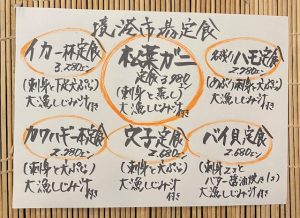 境港市場定食
イカ一杯定食
3,280円
(刺身と足天ぷら)
大漁しじみ汁付き
松葉ガニ
定食 3,980
(刺身と蒸し)
大漁しじみ汁付き
名残りハモ定食
2,980円
(あぶり刺身と天ぷら)
大漁しじみ汁付き
カワハギ一本定食
2,980円
(刺身と天ぷら)
大漁しじみ汁付き
穴子定食
2,680円
(刺身と天ぷら)
大漁しじみ汁付き
バイ貝定食
2,680円
(刺身2コと
バター醤油焼き
大漁しじみ汁
付き